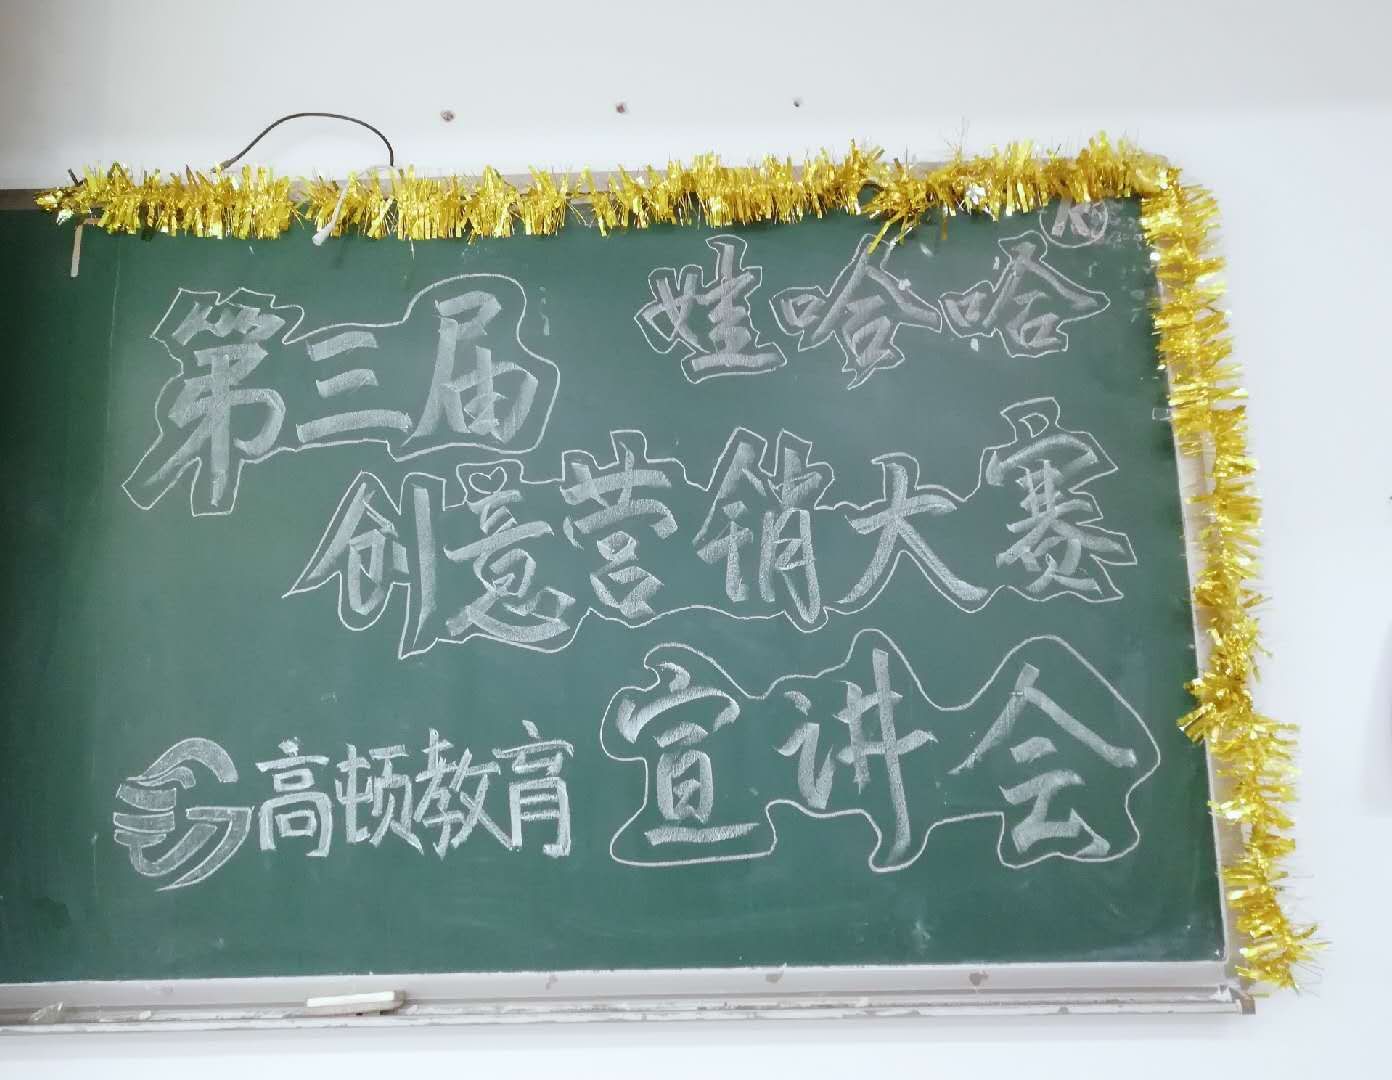 第三届
娃哈哈®
创意营销大赛
宣讲会
高顿教育